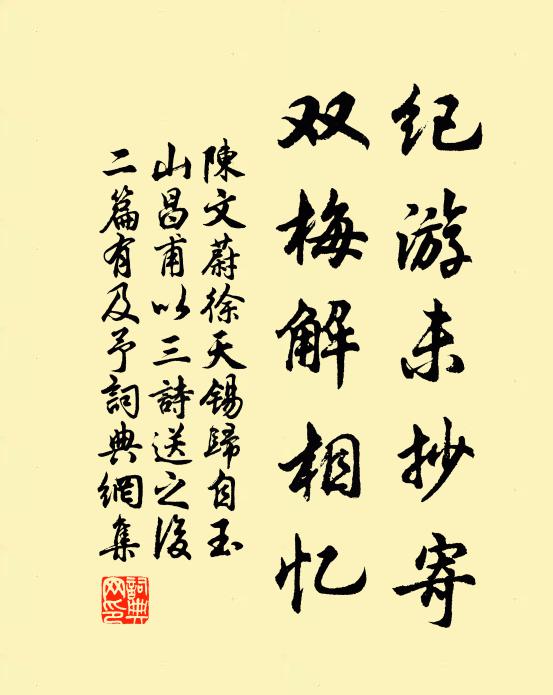 纪游未抄寄
双梅解相忆
陳文蔚徐天锡歸自玉
山昌甫以三詩送之後
二篇有及予詞典網集
詞典网印